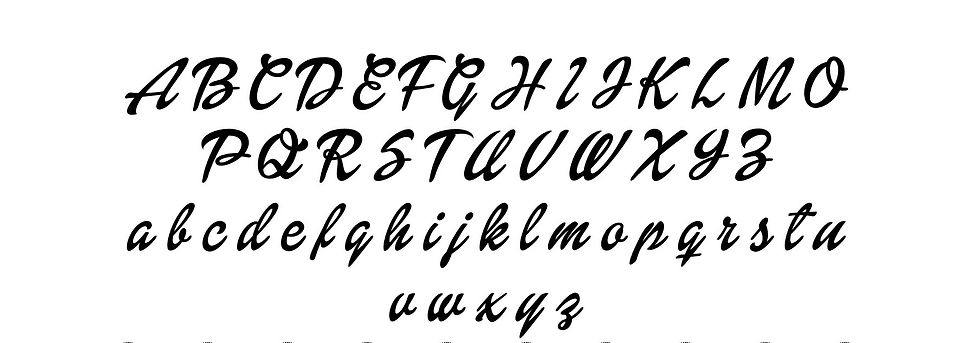 ABCDEFGHIJKLMO
PQRSTUVWXYZ
abcdefghijklmopqrstu
vwxyz